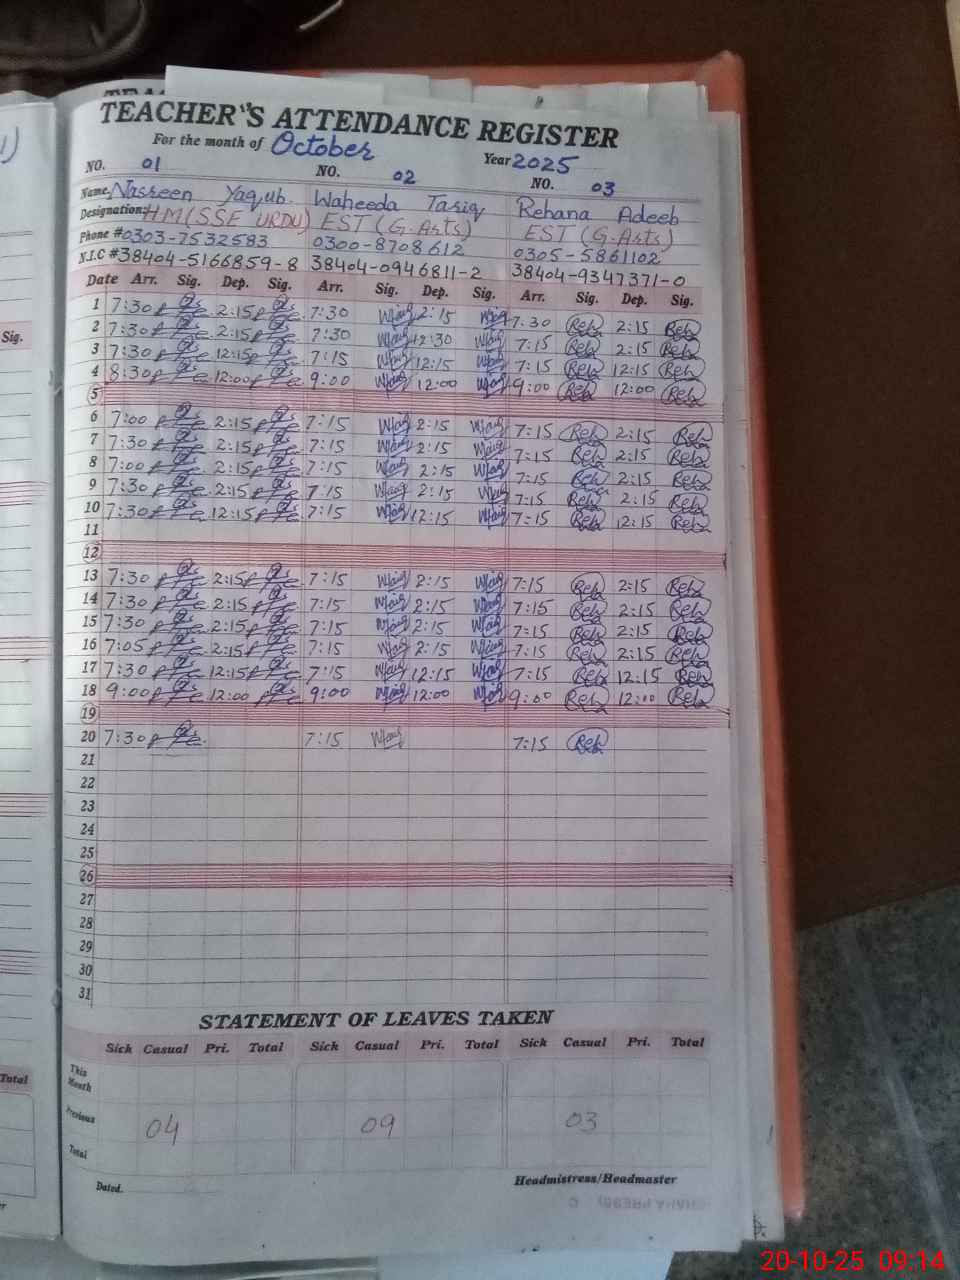 TEACHER'S ATTENDANCE REGISTER
For the month of October Year 2025
NO. 01 NO. 02 NO. 03
Name Nasreen Yaqub. Waheeda Tariq Rehana Adeeb
Designation: H.M(SSE URDU) EST (G.Arts) EST (G.Arts)
Phone #0303-7532583 0300-8708612 0305-5861102
N.I.C #38404-5166859-8 38404-0946811-2 38404-9347371-0
Date Arr. Sig. Dep. Sig. Arr. Sig. Dep. Sig. Arr. Sig. Dep. Sig.
1 7:30 2:15 7:30 2:15 7:30 Reh 2:15 Reh
2 7:30 2:15 7:30 12:30 7:15 Reh 2:15 Reh
3 7:30 12:15 7:15 12:15 7:15 Reh 12:15 Reh
4 8:30 12:00 9:00 12:00 9:00 Reh 12:00 Reh
5
6 7:00 2:15 7:15 2:15 7:15 Reh 2:15 Reh
7 7:30 2:15 7:15 2:15 7:15 Reh 2:15 Reh
8 7:00 2:15 7:15 2:15 7:15 Reh 2:15 Reh
9 7:30 2:15 7:15 2:15 7:15 Reh 2:15 Reh
10 7:30 12:15 7:15 12:15 7:15 Reh 12:15 Reh
11
12
13 7:30 2:15 7:15 2:15 7:15 Reh 2:15 Reh
14 7:30 2:15 7:15 2:15 7:15 Reh 2:15 Reh
15 7:30 2:15 7:15 2:15 7:15 Reh 2:15 Reh
16 7:05 2:15 7:15 2:15 7:15 Reh 2:15 Reh
17 7:30 12:15 7:15 12:15 7:15 Reh 12:15 Reh
18 9:00 12:00 9:00 12:00 9:00 Reh 12:00 Reh
19
20 7:30 7:15 7:15 Reh
21
22
23
24
25
26
27
28
29
30
31
STATEMENT OF LEAVES TAKEN
Sick Casual Pri. Total Sick Casual Pri. Total Sick Casual Pri. Total
This Month
Previous 04 09 03
Total
Dated. Headmistress/Headmaster
Sig.
Total
20-10-25 09:14